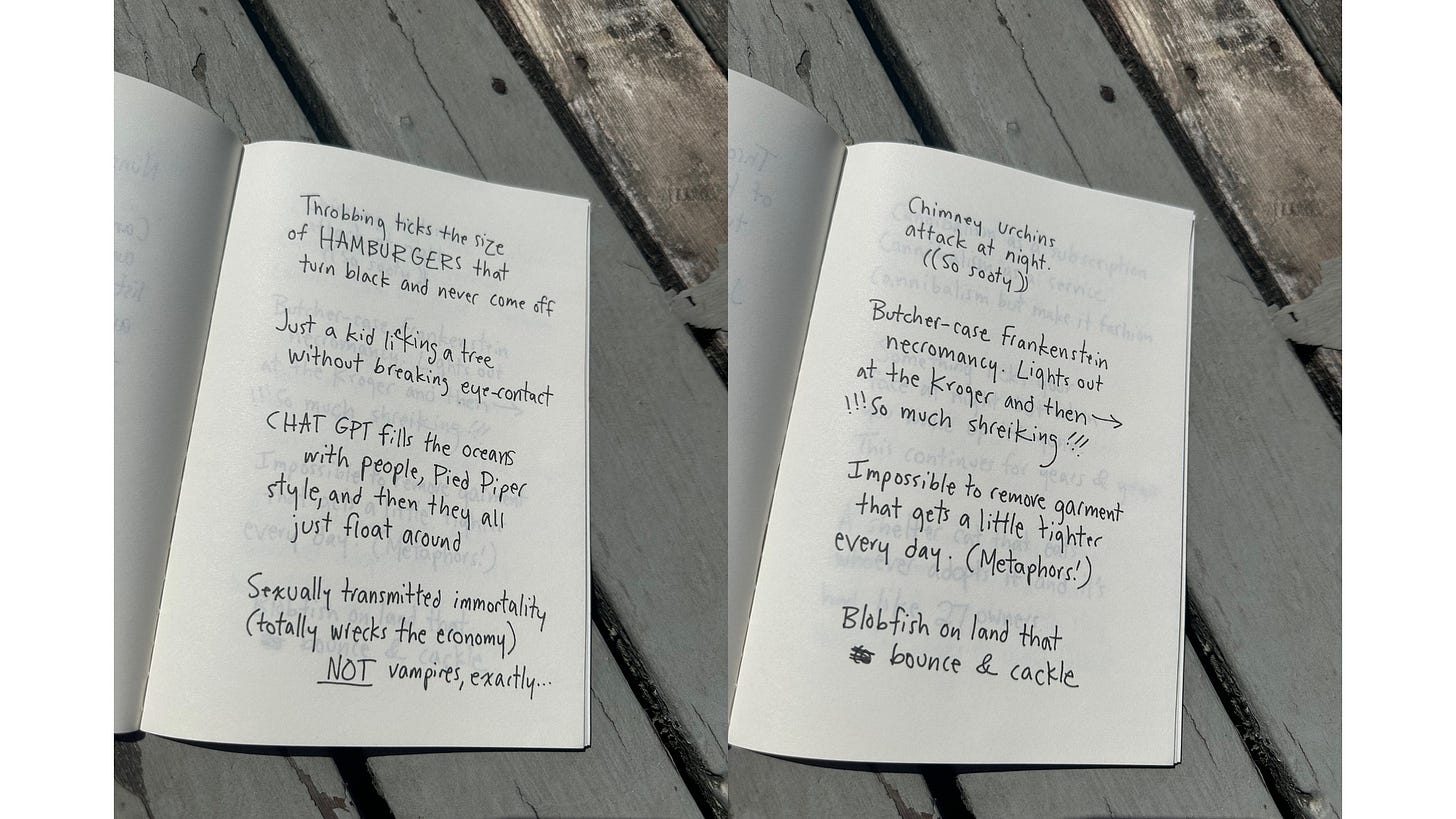 Throbbing ticks the size
of HAMBURGERS that
turn black and never come off
Just a kid licking a tree
without breaking eye-contact
CHAT GPT fills the oceans
with people, Pied Piper
style, and then they all
just float around
Sexually transmitted immortality
(totally wrecks the economy)
NOT vampires, exactly...
Chimney urchins
attack at night.
((So sooty))
Butcher-case Frankenstein
necromancy. Lights out
at the Kroger and then →
!!! So much shreiking !!!
Impossible to remove garment
that gets a little tighter
every day. (Metaphors!)
Blobfish on land that
bounce & cackle